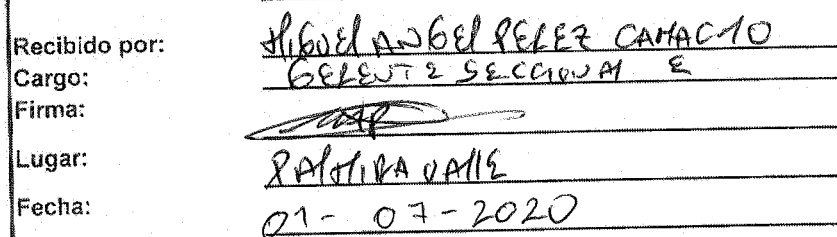 Recibido por: MIGUEL ANGEL PEREZ CAMACHO
Cargo: GERENTE SECCIONAL E
Firma:
Lugar: PALMIRA VALLE
Fecha: 01-07-2020